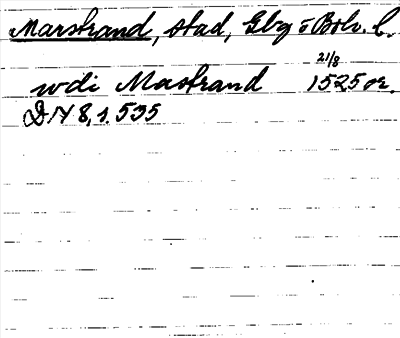 Marstrand, stad, Gbg o Boh. l.
wdi Mastrand 21/8 1525 or.
DN 8, s. 535